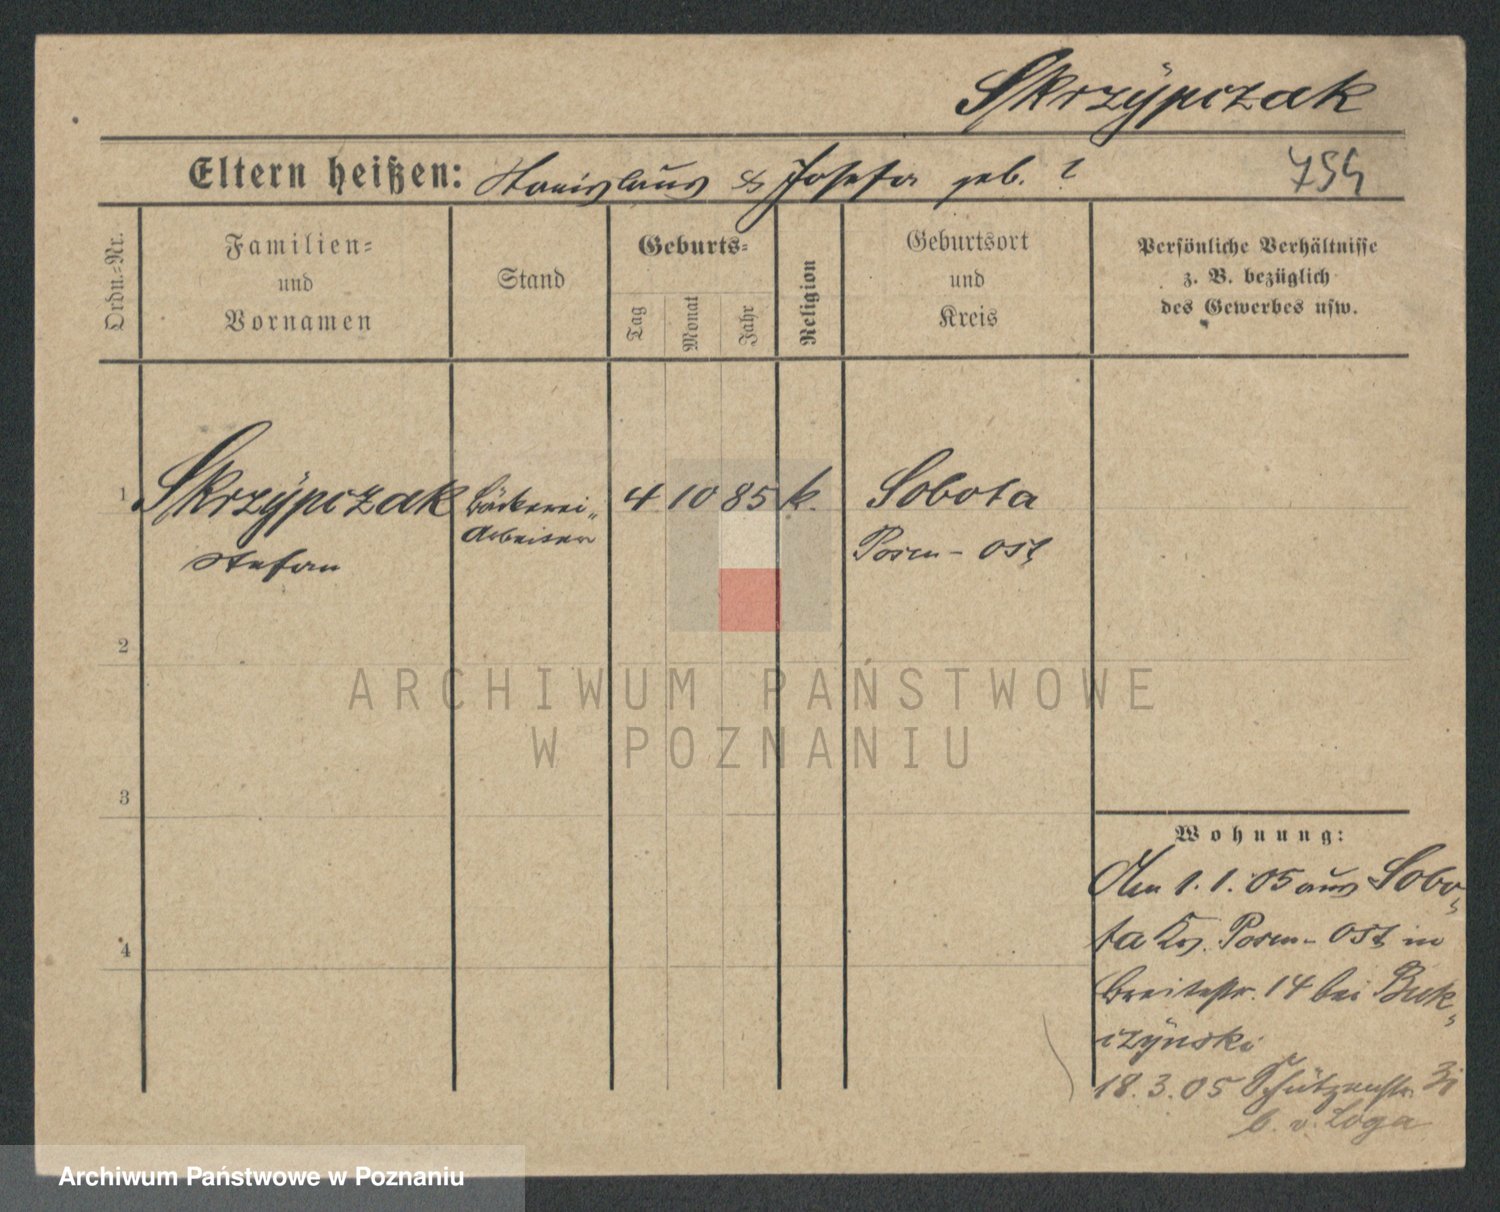 Skrzÿpczak
Eltern heißen: Stanislaus & Josefa geb. ?
754
Ordn.=Nr.
Familien=
und
Vornamen
Stand
Geburts=
Tag
Monat
Jahr
Religion
Geburtsort
und
Kreis
Persönliche Verhältnisse
z. B. bezüglich
des Gewerbes usw.
1 Skrzÿpczak Bäckerei- 4 10 85 k. Sobota
Stefan Arbeiter Posen-Ost
2
3
4
Wohnung:
Am 1.1.05 aus Sobo-
ta Krs. Posen-Ost in
Breitestr. 14 bei Buk-
czÿnski
18.3.05 Schützenstr.
b. v. Loga
ARCHIWUM PAŃSTWOWE
W POZNANIU
Archiwum Państwowe w Poznaniu